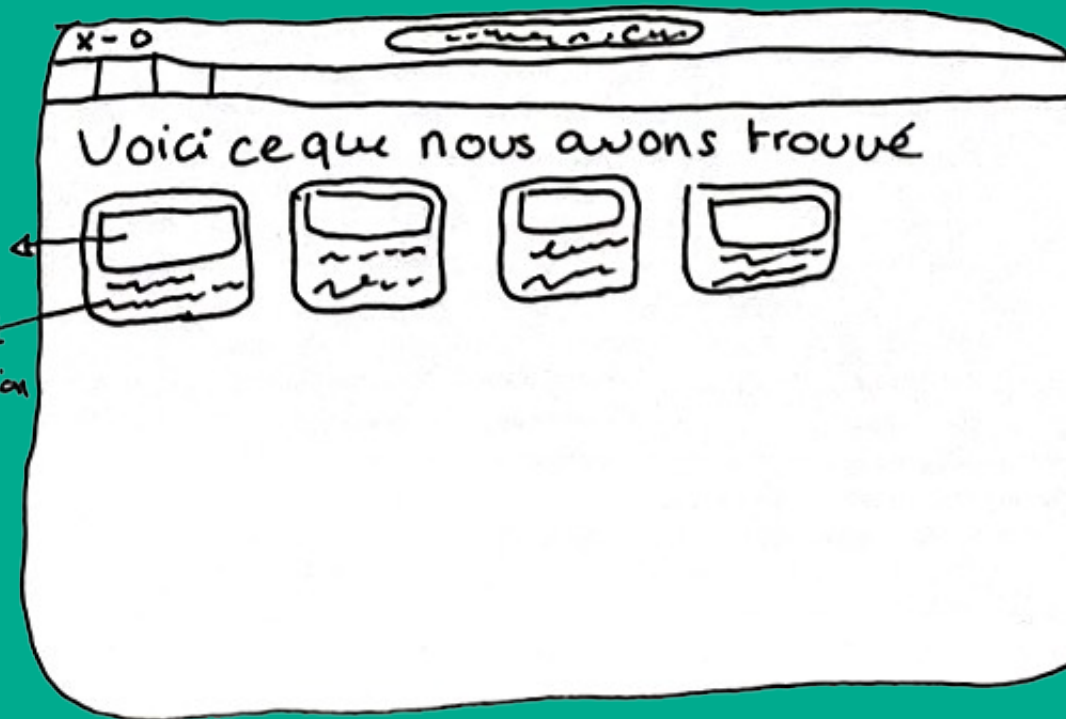 x - o
Voici ce que nous avons trouvé